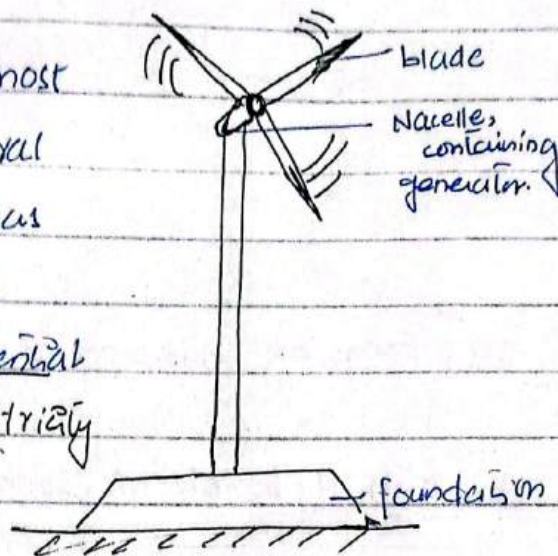 most
ral
as
ential
tricity
blade
Nacelle,
containing
generator.
foundation